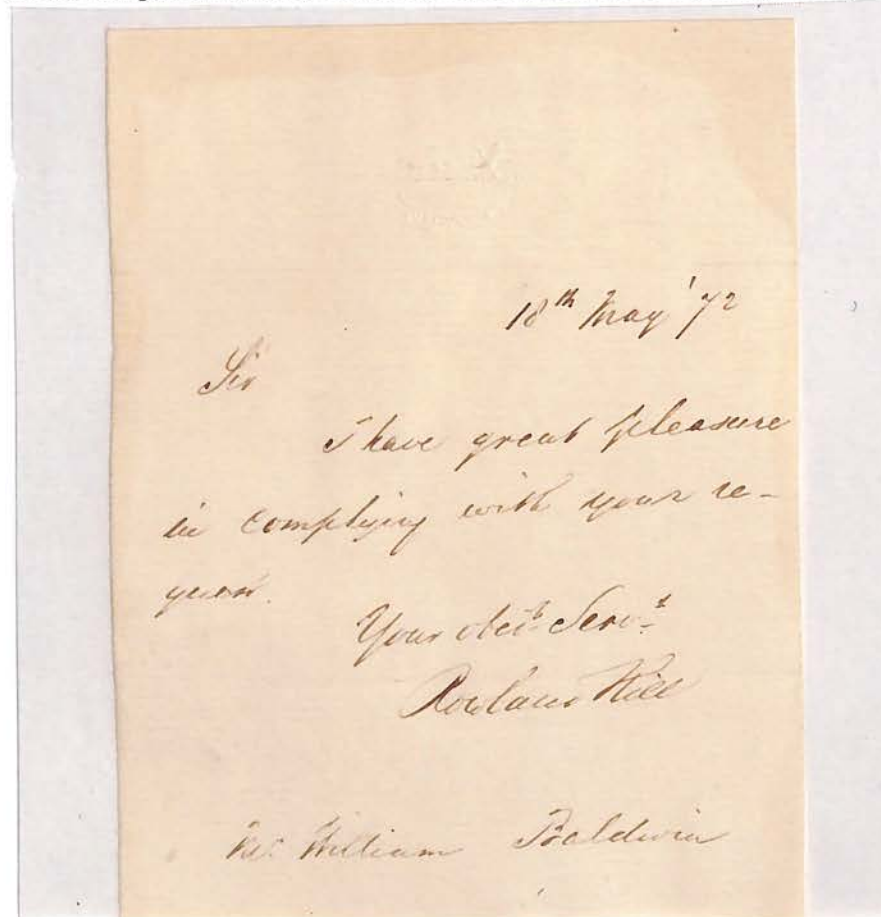 18th May '72
Sir
I have great pleasure
in complying with your re-
quest.
Your obedt. Servt.
Rowland Hill
Mr William Baldwin